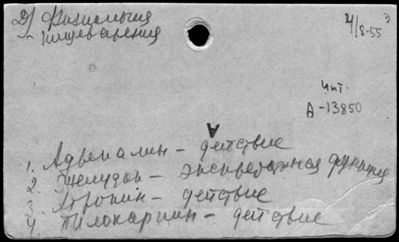 Д) Физиология
пищеварения
4/8-55 3
Чит.
А-13850
А
1. Адреналин - действие
2. Желудок - экскреторная функция
3. Атропин - действие
4. Пилокарпин - действие